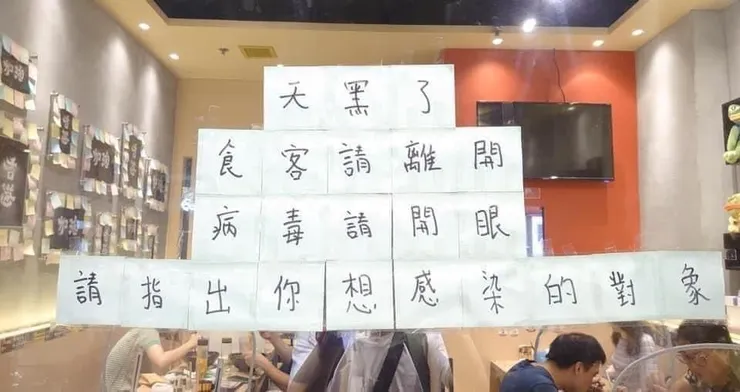 天黑了
食客請離開
病毒請開眼
請指出你想感染的對象